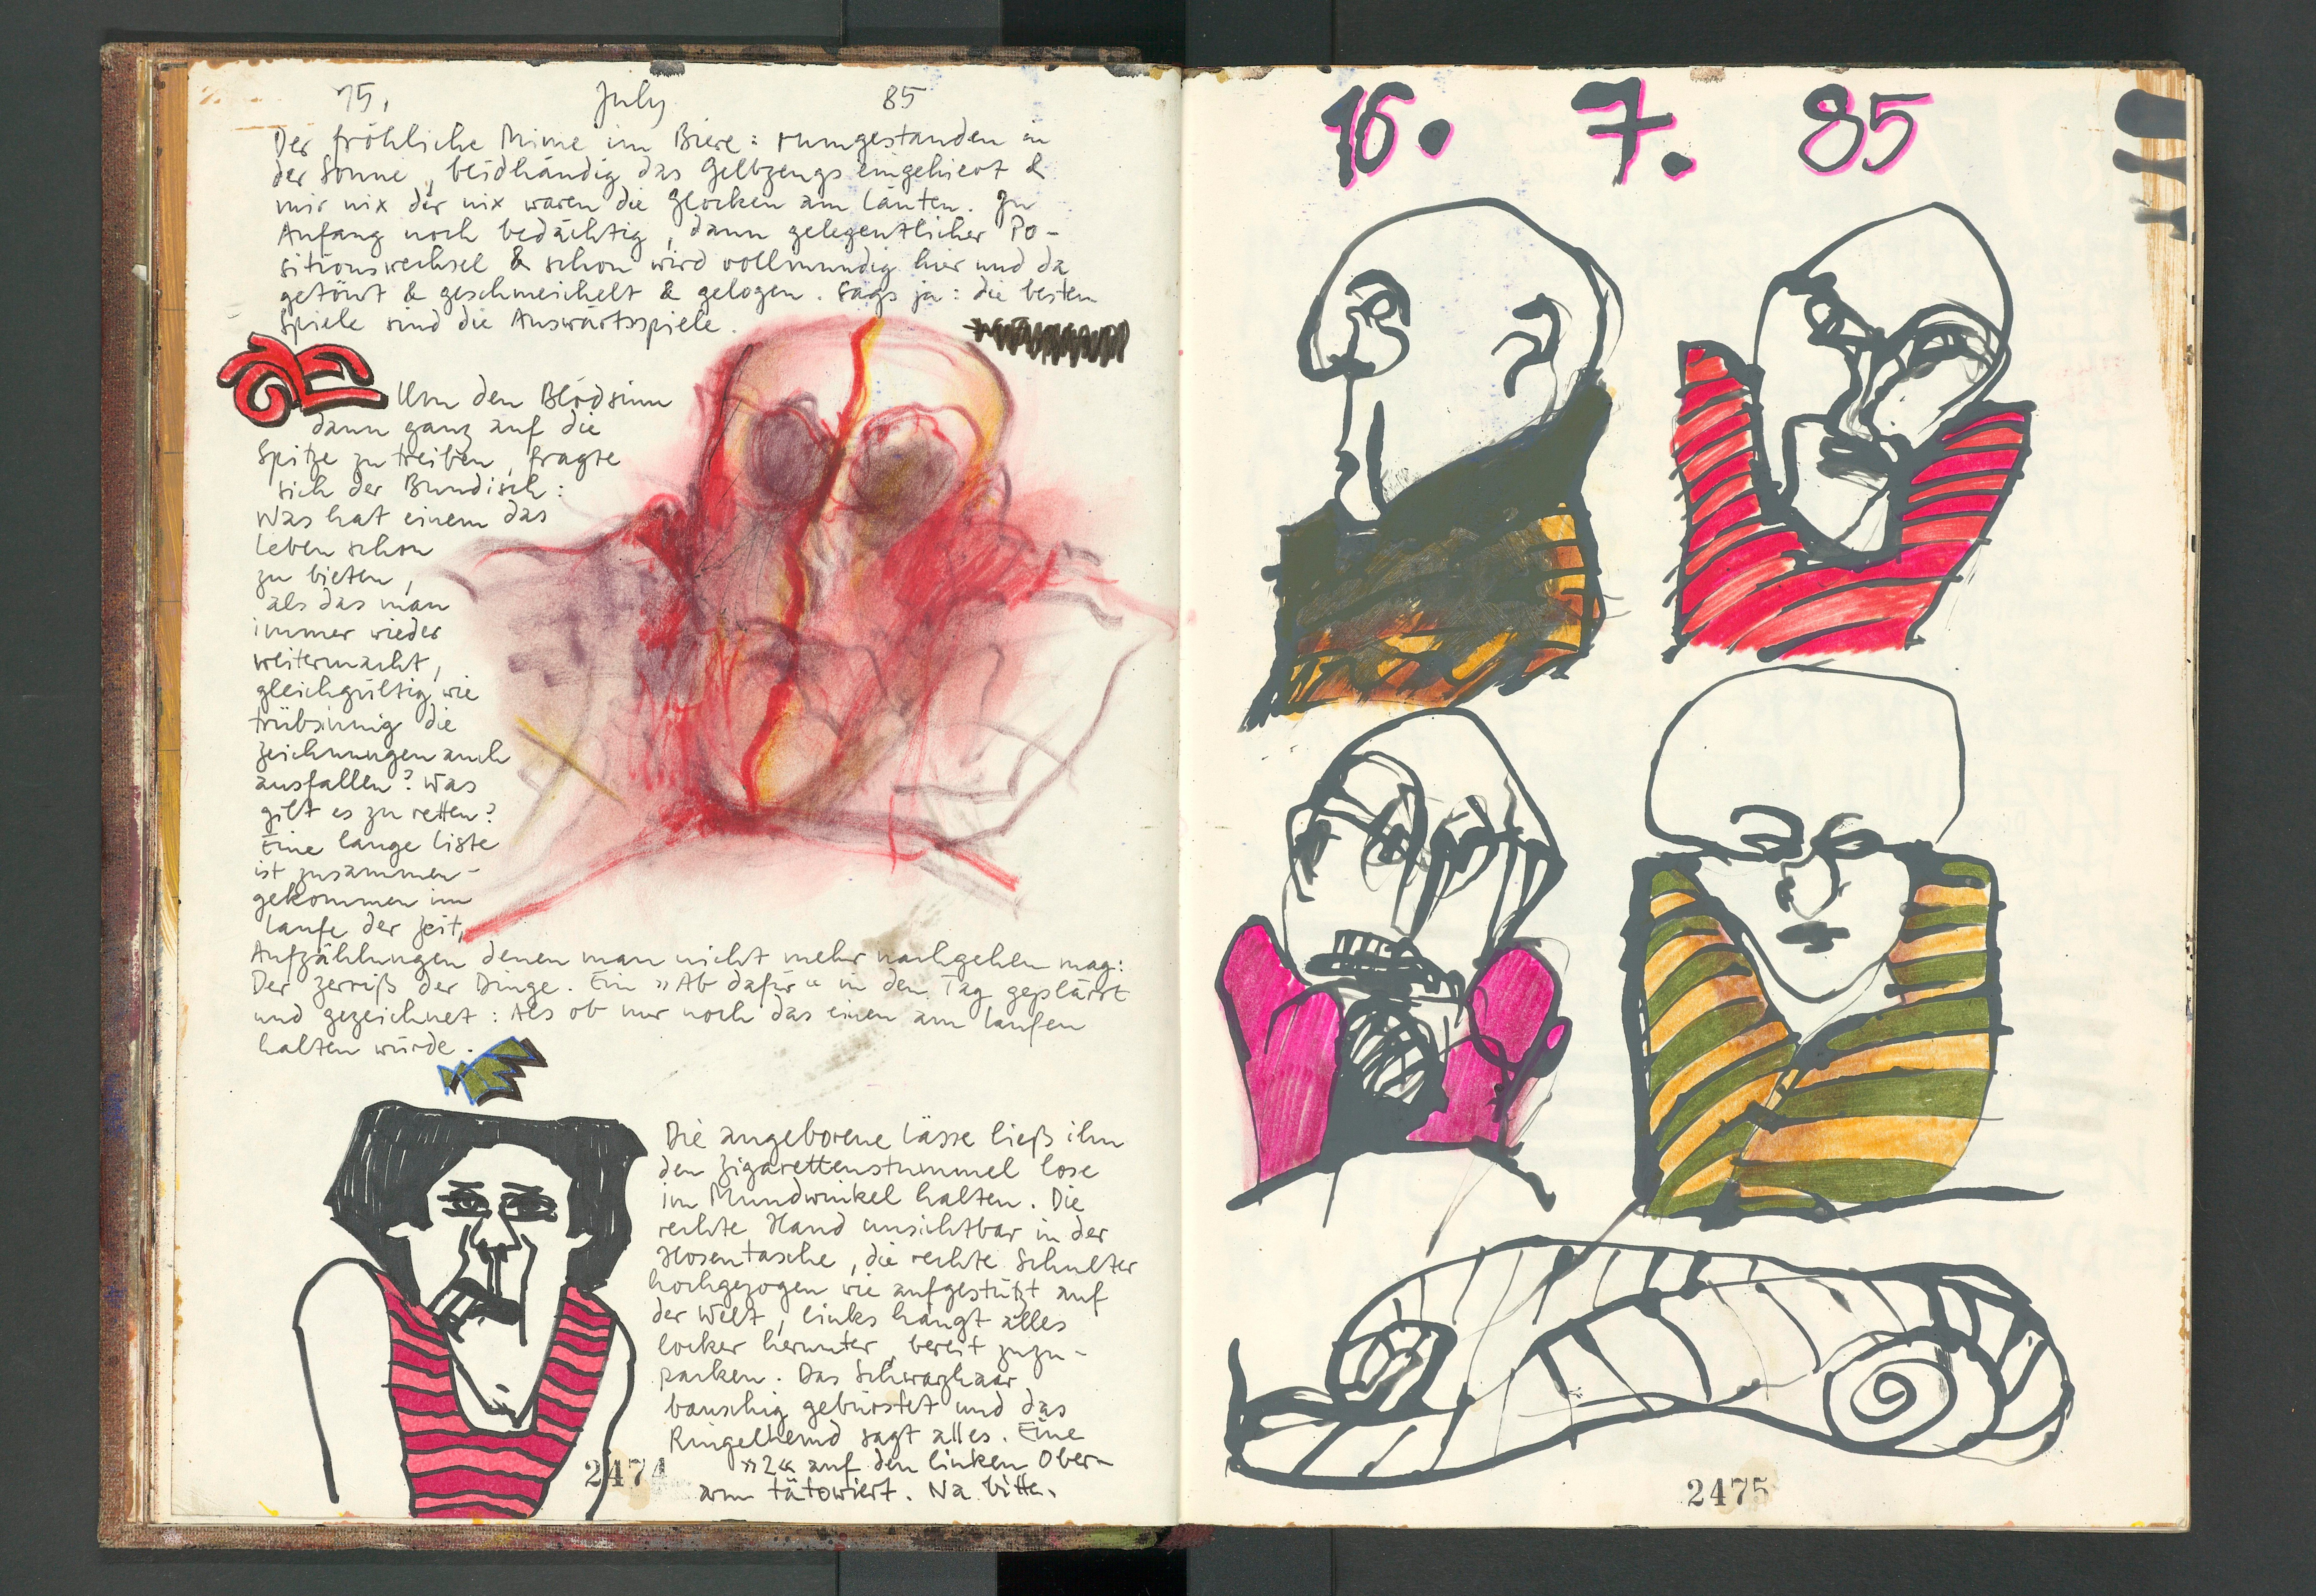 15. July 85
Der fröhliche Mime im Biere: rumgestanden in
der Sonne, beidhändig das Gelbzeugs eingehievt &
mir nix dir nix waren die Glocken am Läuten. Zu
Anfang noch bedächtig, dann gelegentlicher Po-
sitionswechsel & schon wird vollmundig hier und da
getönt & geschmeichelt & gelogen. Sags ja: die besten
Spiele sind die Auswärtsspiele.
Um den Blödsinn
dann ganz auf die
Spitze zu treiben, fragte
sich der Bundisch:
Was hat einem das
Leben schon
zu bieten,
als das man
immer wieder
weitermacht,
gleichgültig wie
trübsinnig die
Zeichnungen auch
ausfallen? Was
gilt es zu retten?
Eine lange Liste
ist zusammen-
gekommen im
Laufe der Zeit,
Aufzählungen denen man nicht mehr nachgehen mag:
Der Zerriß der Dinge. Ein »Ab dafür« in den Tag geplärrt
und gezeichnet: Als ob nur noch das einen am Laufen
halten würde.
Die angeborene Lässe ließ ihn
den Zigarettenstummel lose
im Mundwinkel halten. Die
rechte Hand unsichtbar in der
Hosentasche, die rechte Schulter
hochgezogen wie aufgestützt auf
der Welt, links hängt alles
locker herunter, bereit zuzu-
packen. Das Schwarzhaar
bauschig gebürstet und das
Ringelhemd sagt alles. Eine
»2« auf den linken Ober-
arm tätowiert. Na bitte.
2474
16. 7. 85
2475